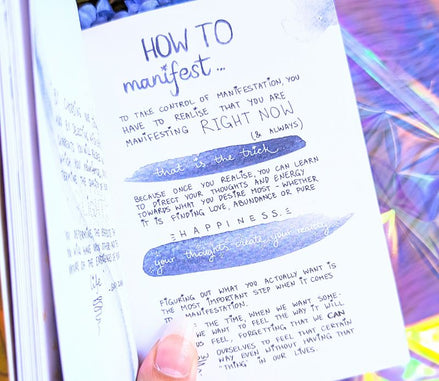 HOW TO
manifest...
TO TAKE CONTROL OF MANIFESTATION, YOU
HAVE TO REALISE THAT YOU ARE
MANIFESTING RIGHT NOW
(& ALWAYS)
that is the trick...
BECAUSE ONCE YOU REALISE, YOU CAN LEARN
TO DIRECT YOUR THOUGHTS AND ENERGY
TOWARDS WHAT YOU DESIRE MOST - WHETHER
IT IS FINDING LOVE, ABUNDANCE OR PURE
HAPPINESS.
your thoughts create your reality
FIGURING OUT WHAT YOU ACTUALLY WANT IS
THE MOST IMPORTANT STEP WHEN IT COMES
TO MANIFESTATION.
THE TIME, WHEN WE WANT SOME-
WE WANT TO FEEL THE WAY IT WILL
US FEEL, FORGETTING THAT WE CAN
OURSELVES TO FEEL THAT CERTAIN
WAY EVEN WITHOUT HAVING THAT
"THING" IN OUR LIVES.